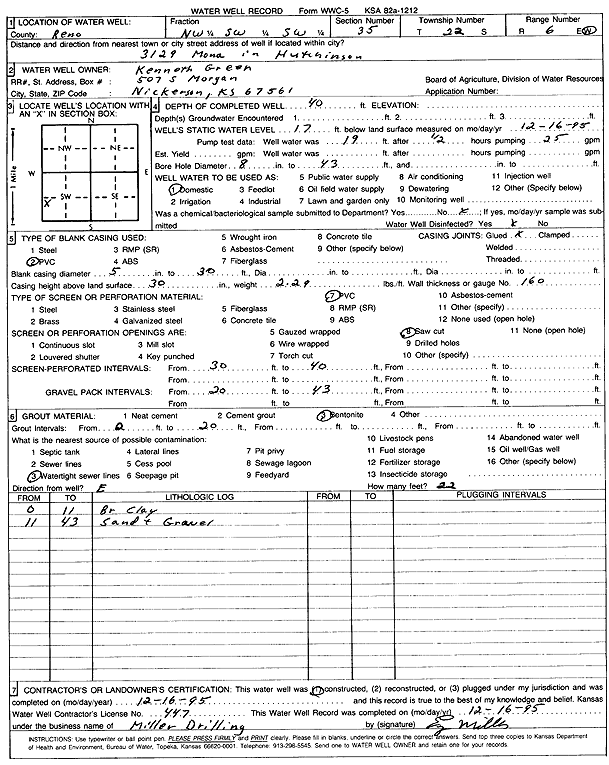 WATER WELL RECORD Form WWC-5 KSA 82a-1212
1 LOCATION OF WATER WELL: Fraction Section Number Township Number Range Number
County: Reno NW ¼ SW ¼ SW ¼ 35 T 22 S R 6 E/W
Distance and direction from nearest town or city street address of well if located within city?
3129 Mona in Hutchinson
2 WATER WELL OWNER: Kenneth Green
RR#, St. Address, Box # : 507 S Morgan Board of Agriculture, Division of Water Resources
City, State, ZIP Code : Nickerson, KS 67561 Application Number:
3 LOCATE WELL'S LOCATION WITH AN "X" IN SECTION BOX:
N
NW NE
W E
X SW SE
S
1 Mile
4 DEPTH OF COMPLETED WELL 40 ft. ELEVATION:
Depth(s) Groundwater Encountered 1. ft. 2. ft. 3. ft.
WELL'S STATIC WATER LEVEL 17 ft. below land surface measured on mo/day/yr 12-16-95
Pump test data: Well water was 19 ft. after 1/2 hours pumping 25 gpm
Est. Yield gpm: Well water was ft. after hours pumping gpm
Bore Hole Diameter 8 in. to 43 ft., and in. to ft.
WELL WATER TO BE USED AS: 5 Public water supply 8 Air conditioning 11 Injection well
1 Domestic 3 Feedlot 6 Oil field water supply 9 Dewatering 12 Other (Specify below)
2 Irrigation 4 Industrial 7 Lawn and garden only 10 Monitoring well
Was a chemical/bacteriological sample submitted to Department? Yes No X; If yes, mo/day/yr sample was submitted
Water Well Disinfected? Yes X No
5 TYPE OF BLANK CASING USED: 5 Wrought iron 8 Concrete tile CASING JOINTS: Glued X Clamped
1 Steel 3 RMP (SR) 6 Asbestos-Cement 9 Other (specify below) Welded
2 PVC 4 ABS 7 Fiberglass Threaded.
Blank casing diameter 5 in. to 30 ft., Dia in. to ft., Dia in. to ft.
Casing height above land surface 30 in., weight 2.29 lbs./ft. Wall thickness or gauge No. 160
TYPE OF SCREEN OR PERFORATION MATERIAL: 7 PVC 10 Asbestos-cement
1 Steel 3 Stainless steel 5 Fiberglass 8 RMP (SR) 11 Other (specify)
2 Brass 4 Galvanized steel 6 Concrete tile 9 ABS 12 None used (open hole)
SCREEN OR PERFORATION OPENINGS ARE: 5 Gauzed wrapped 8 Saw cut 11 None (open hole)
1 Continuous slot 3 Mill slot 6 Wire wrapped 9 Drilled holes
2 Louvered shutter 4 Key punched 7 Torch cut 10 Other (specify)
SCREEN-PERFORATED INTERVALS: From 30 ft. to 40 ft., From ft. to ft.
From ft. to ft., From ft. to ft.
GRAVEL PACK INTERVALS: From 20 ft. to 43 ft., From ft. to ft.
From ft. to ft., From ft. to ft.
6 GROUT MATERIAL: 1 Neat cement 2 Cement grout 3 Bentonite 4 Other
Grout Intervals: From 2 ft. to 20 ft., From ft. to ft., From ft. to ft.
What is the nearest source of possible contamination: 10 Livestock pens 14 Abandoned water well
1 Septic tank 4 Lateral lines 7 Pit privy 11 Fuel storage 15 Oil well/Gas well
2 Sewer lines 5 Cess pool 8 Sewage lagoon 12 Fertilizer storage 16 Other (specify below)
3 Watertight sewer lines 6 Seepage pit 9 Feedyard 13 Insecticide storage
Direction from well? E How many feet? 22
FROM TO LITHOLOGIC LOG FROM TO PLUGGING INTERVALS
0 11 Br Clay
11 43 Sand + Gravel
7 CONTRACTOR'S OR LANDOWNER'S CERTIFICATION: This water well was (1) constructed, (2) reconstructed, or (3) plugged under my jurisdiction and was
completed on (mo/day/year) 12-16-95 and this record is true to the best of my knowledge and belief. Kansas
Water Well Contractor's License No. 447 This Water Well Record was completed on (mo/day/yr) 12-16-95
under the business name of Miller Drilling by (signature)
INSTRUCTIONS: Use typewriter or ball point pen. PLEASE PRESS FIRMLY and PRINT clearly. Please fill in blanks, underline or circle the correct answers. Send top three copies to Kansas Department
of Health and Environment, Bureau of Water, Topeka, Kansas 66620-0001. Telephone: 913-296-5545. Send one to WATER WELL OWNER and retain one for your records.